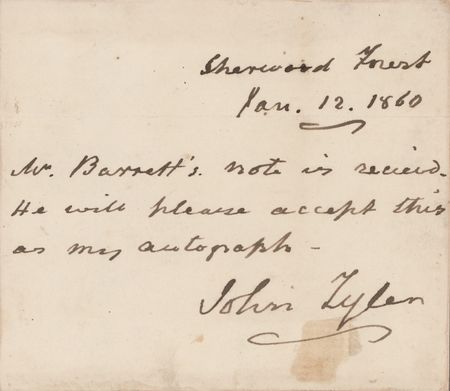 Sherwood Forest
Jan. 12. 1860
Mr Barrett's. note is recievd.
He will please accept this
as my autograph -
John Tyler